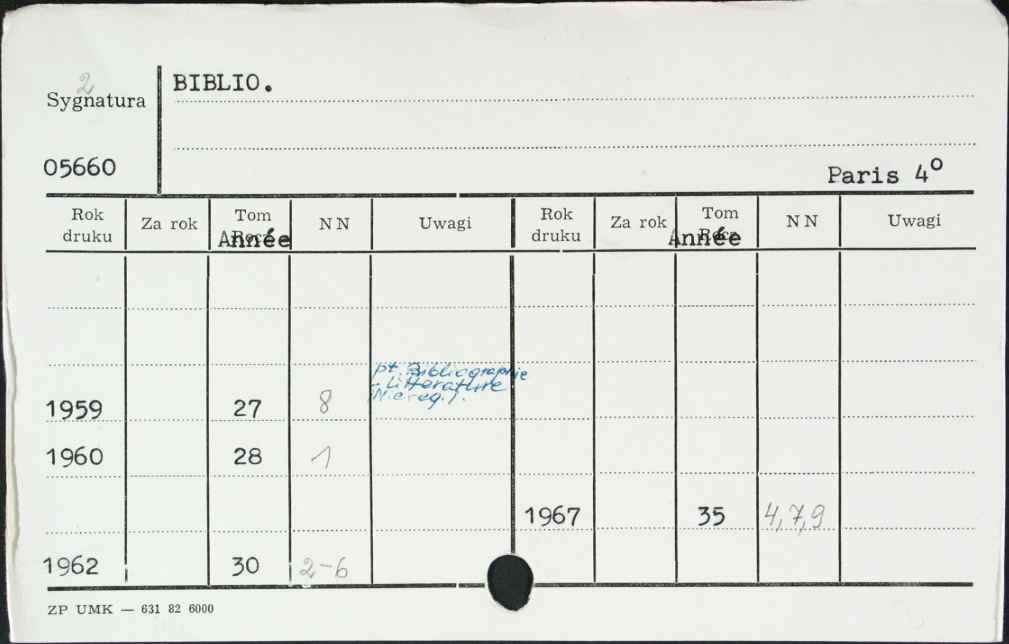 2
BIBLIO.
Sygnatura
05660
Paris 4º
Rok druku Za rok Tom Année NN Uwagi Rok druku Za rok Tom Année NN Uwagi
pt. Bibliographie
- Littérature
1959 27 8
1960 28 1
1967 35 4,7,9
1962 30 2-6
ZP UMK — 631 82 6000